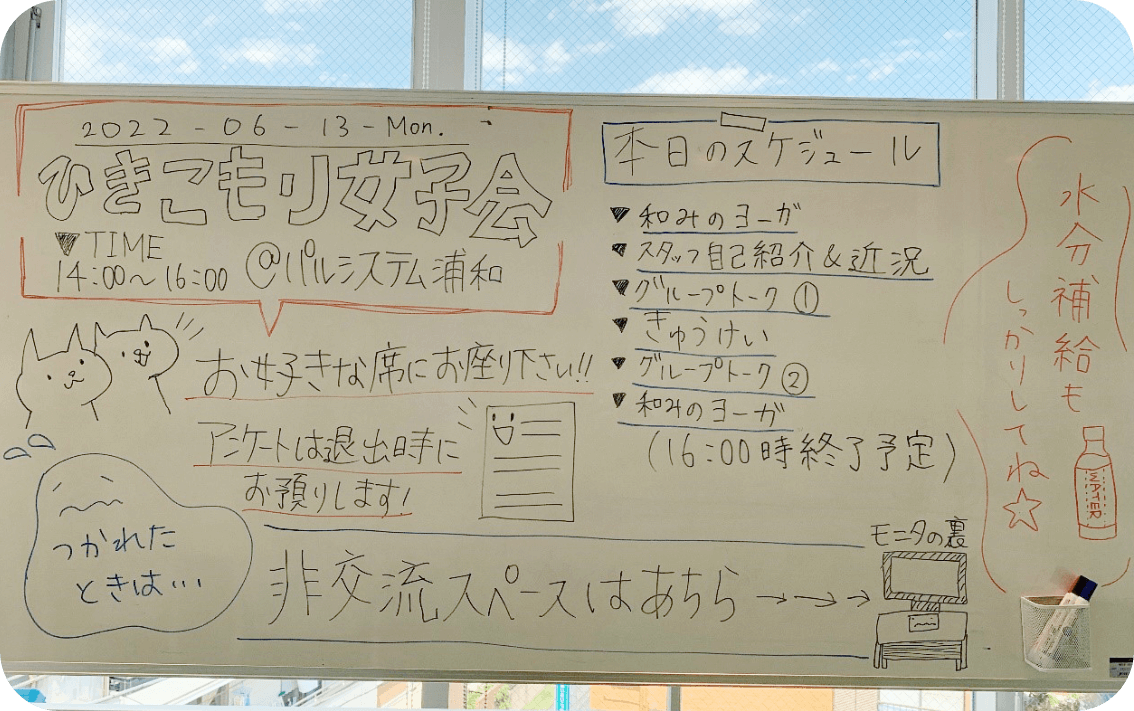 2022-06-13-Mon.
ひきこもり女子会
▼TIME
14:00〜16:00 @パルシステム浦和
お好きな席にお座り下さい!!
アンケートは退出時に
お預りします!
つかれた
ときは…
非交流スペースはあちら→→→
モニタの裏
本日のスケジュール
▼和みのヨーガ
▼スタッフ自己紹介&近況
▼グループトーク①
▼きゅうけい
▼グループトーク②
▼和みのヨーガ
(16:00時終了予定)
水分補給も
しっかりしてね☆
WATER